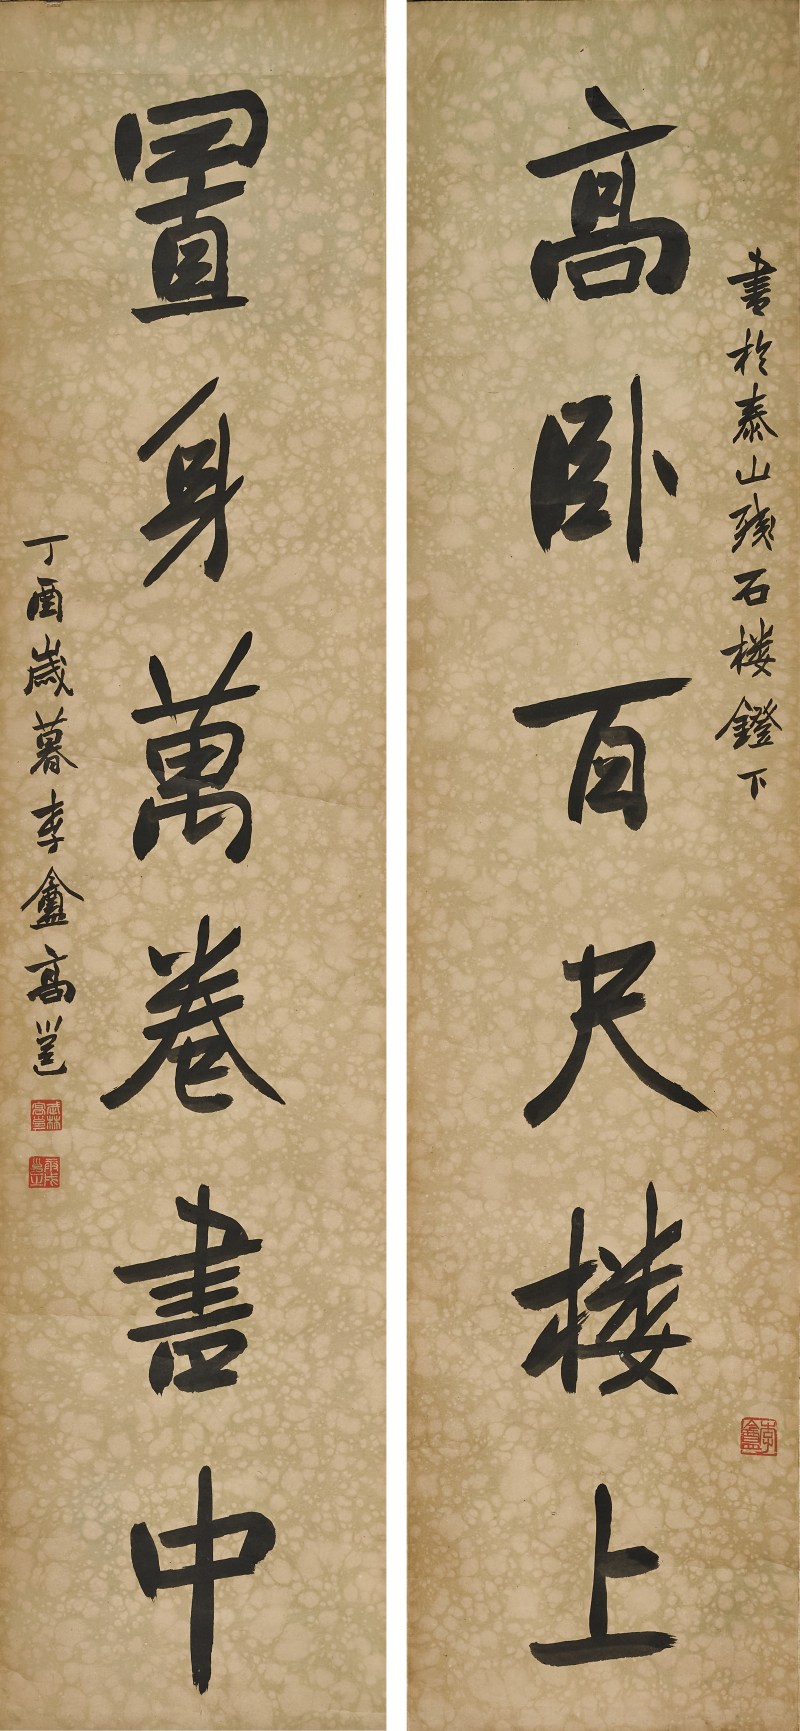 書於泰山殘石楼鐙下
高卧百尺楼上
李盦
置身萬卷書中
丁酉歲暮李盦高邕
武林高邕